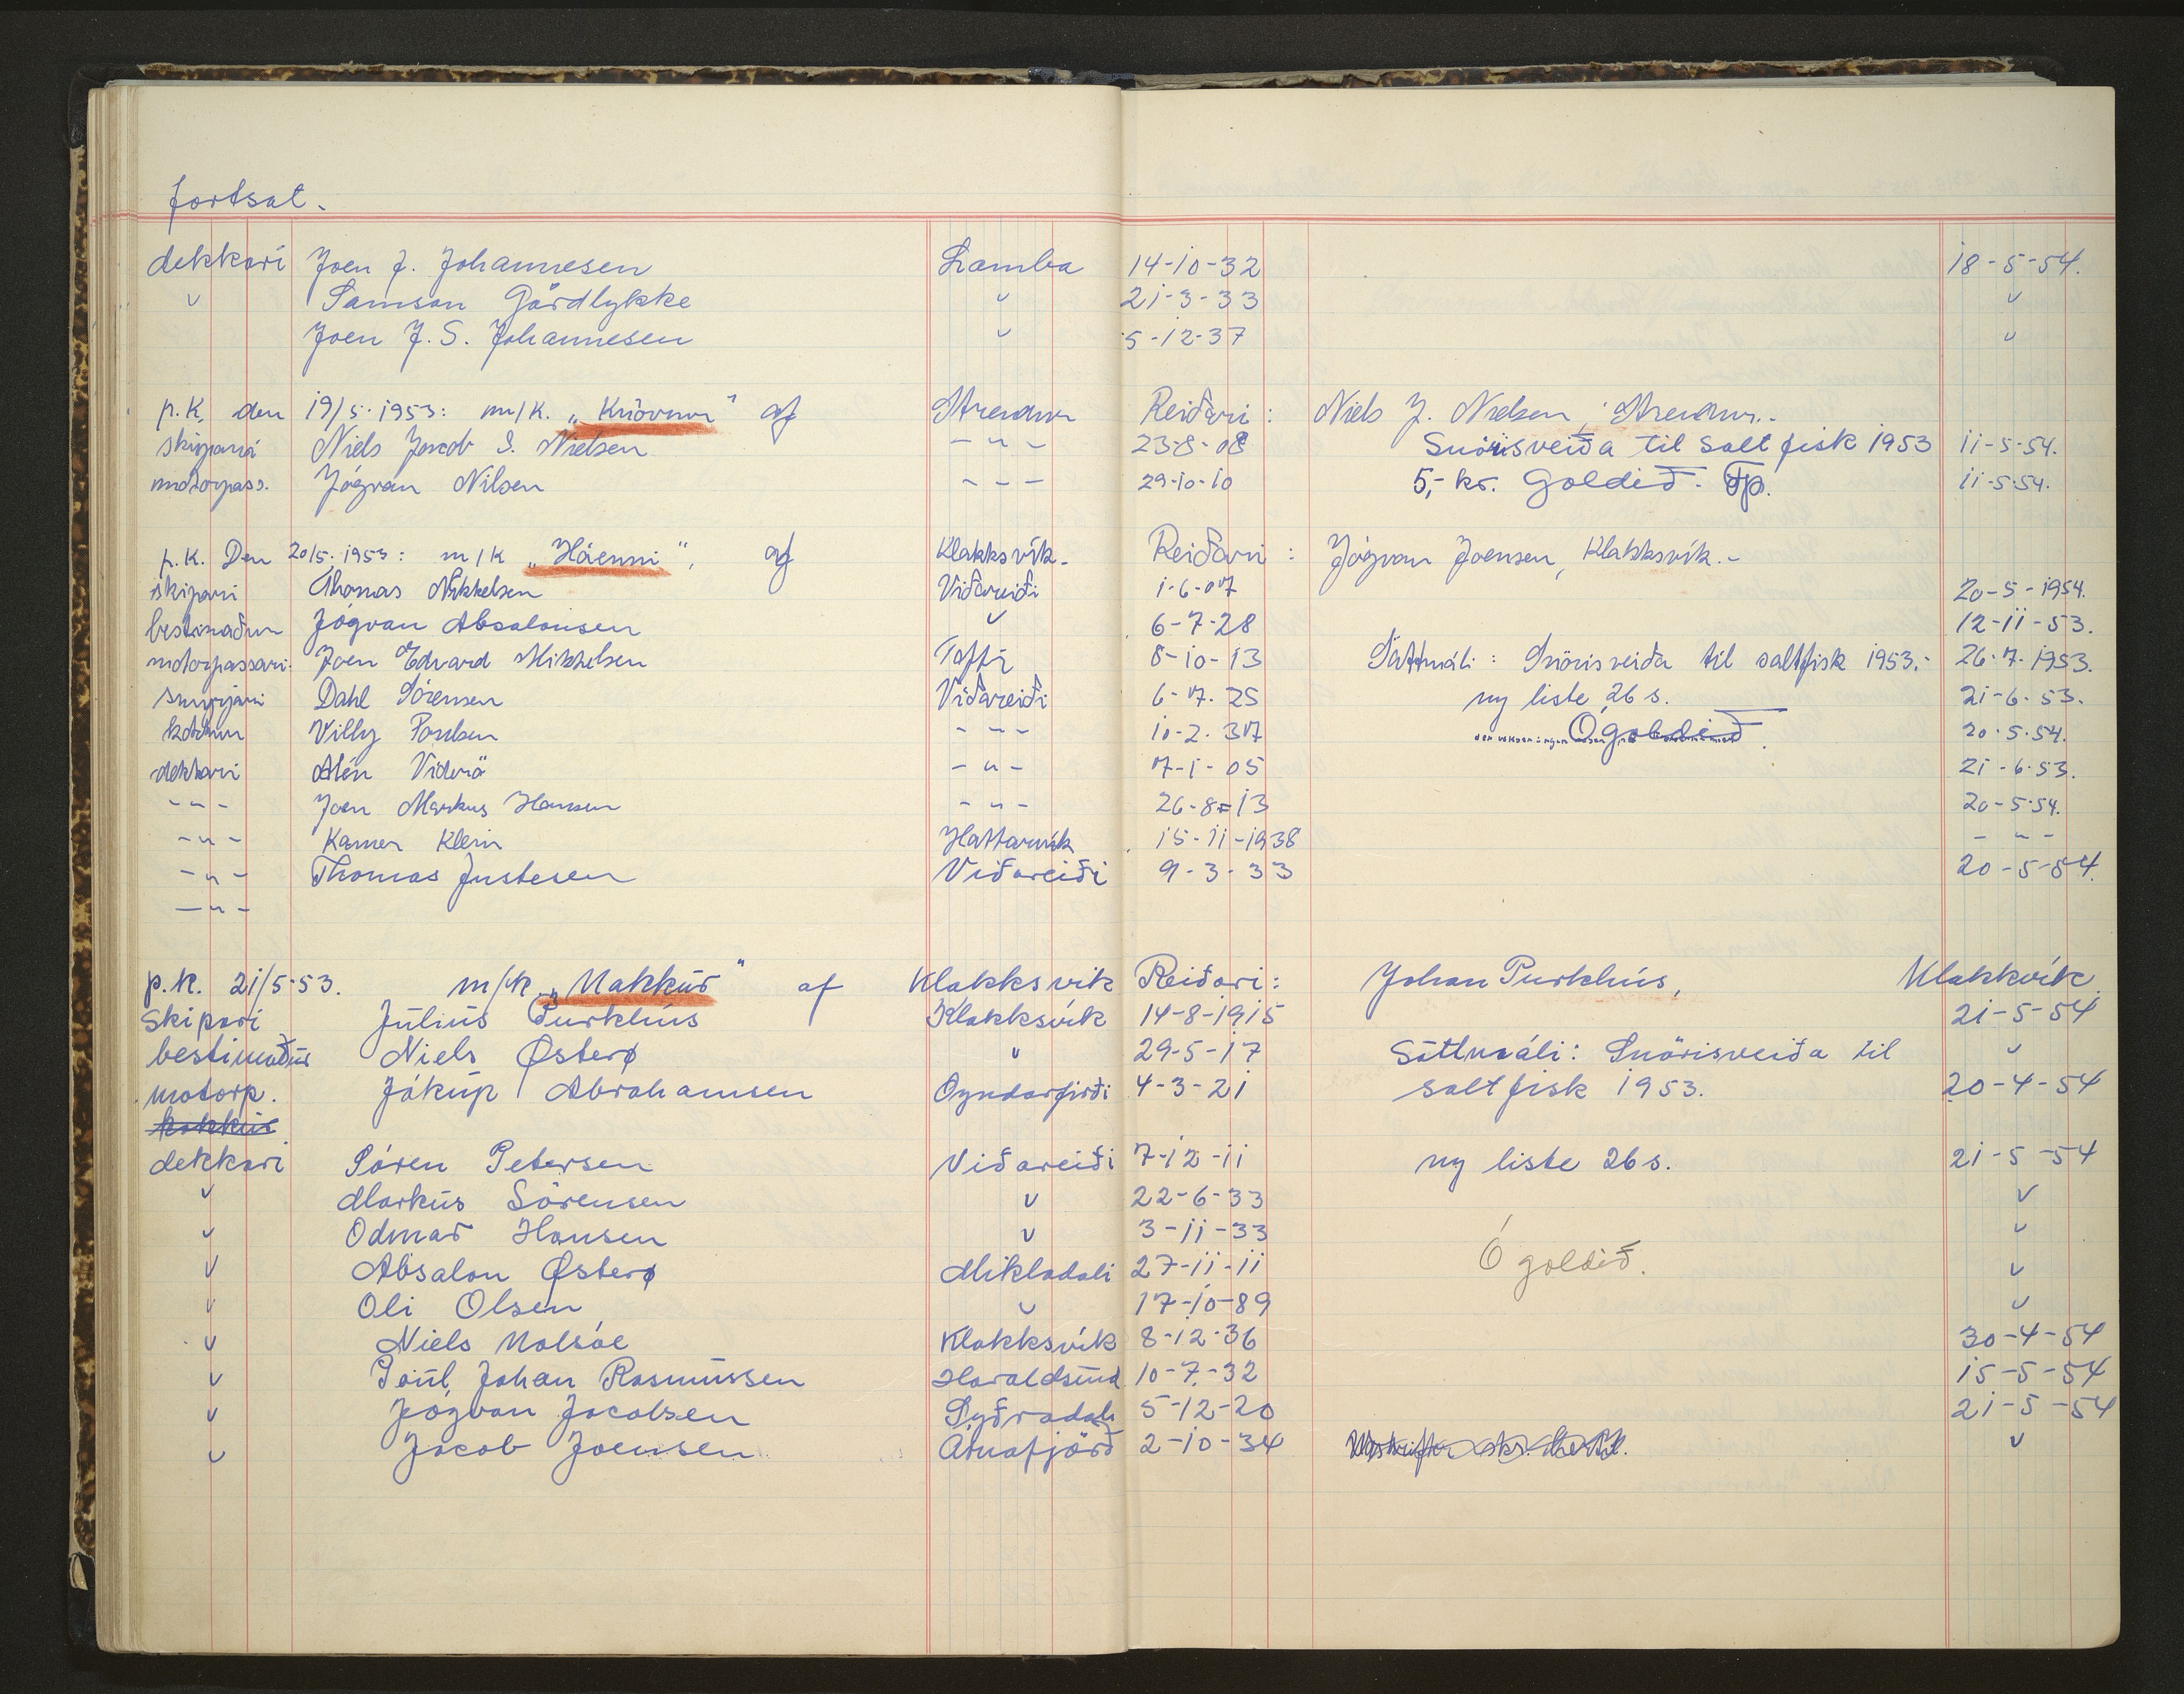 fortsat.
dekkari Joen J. Johannesen Lamba 14-10-32 18-5-54.
" Samson Gårdlykke " 21-3-33 "
Joen J. S. Johannesen " 5-12-37 "
p.k. den 19/5.1953: m/k. „Knövur" af Strendur Reiðari: Niels J. Nielsen, Strendur.-
skipari Niels Jacob S. Nielsen -"- 23-8-08 Snörisveiða til saltfisk 1953 11-5-54.
motorpass. Jógvan Nilsen - - - 29-10-10 5,- kr. Goldið. 11-5-54.
p.k. Den 20/5.1953: m/k „Háenni", af Klakksvík. Reiðari: Jógvan Joensen, Klakksvík.-
skipari Thomas Mikkelsen Viðareiði 1-6-07 20-5-1954.
bestimaður Jógvan Absalonsen " 6-7-28 12-11-53.
motorpassari Joen Edvard Mikkelsen Toftir 8-10-13 Sáttmáli: Snörisveiða til saltfisk 1953.- 26-7-1953.
smyrjari Dahl Sörensen Viðareiði 6-7-25 ny liste 26 s. 21-6-53.
kokkur Villy Poulsen - - - 10-2-37 Ógoldið. 20-5-54.
dekkari Alén Viderö -"- 7-1-05 21-6-53.
-"- Joen Markus Hansen -"- 26-8-13 20-5-54.
-"- Kamer Klein Hattarvík 15-11-1938 - " -
-"- Thomas Justesen Viðareiði 9-3-33 20-5-54.
-"-
p.k. 21/5-53. m/k „Makkur" af Klakksvik Reiðari: Johan Purkhús, Klakkvík.
Skipari Júlíus Purkhús Klakksvík 14-8-1915 21-5-54
bestimaður Niels Østerø " 29-5-17 Sáttmáli: Snörisveiða til "
motorp. Jákup Abrahamsen Oyndarfirði 4-3-21 saltfisk 1953. 20-4-54
kokkur
dekkari Sóren Petersen Viðareiði 7-12-11 ny liste 26 s. 21-5-54
" Markus Sörensen " 22-6-33 "
" Odmar Hansen " 3-11-33 "
" Absalon Østerø Mikladali 27-11-11 Ógoldið. "
" Oli Olsen " 17-10-89 "
" Niels Nolsóe Klakksvík 8-12-36 30-4-54
" Poul Johan Rasmussen Haraldsund 10-7-32 15-5-54
" Jógvan Jacobsen Syðradali 5-12-20 21-5-54
" Jacob Joensen Árnafjörð 2-10-34 "